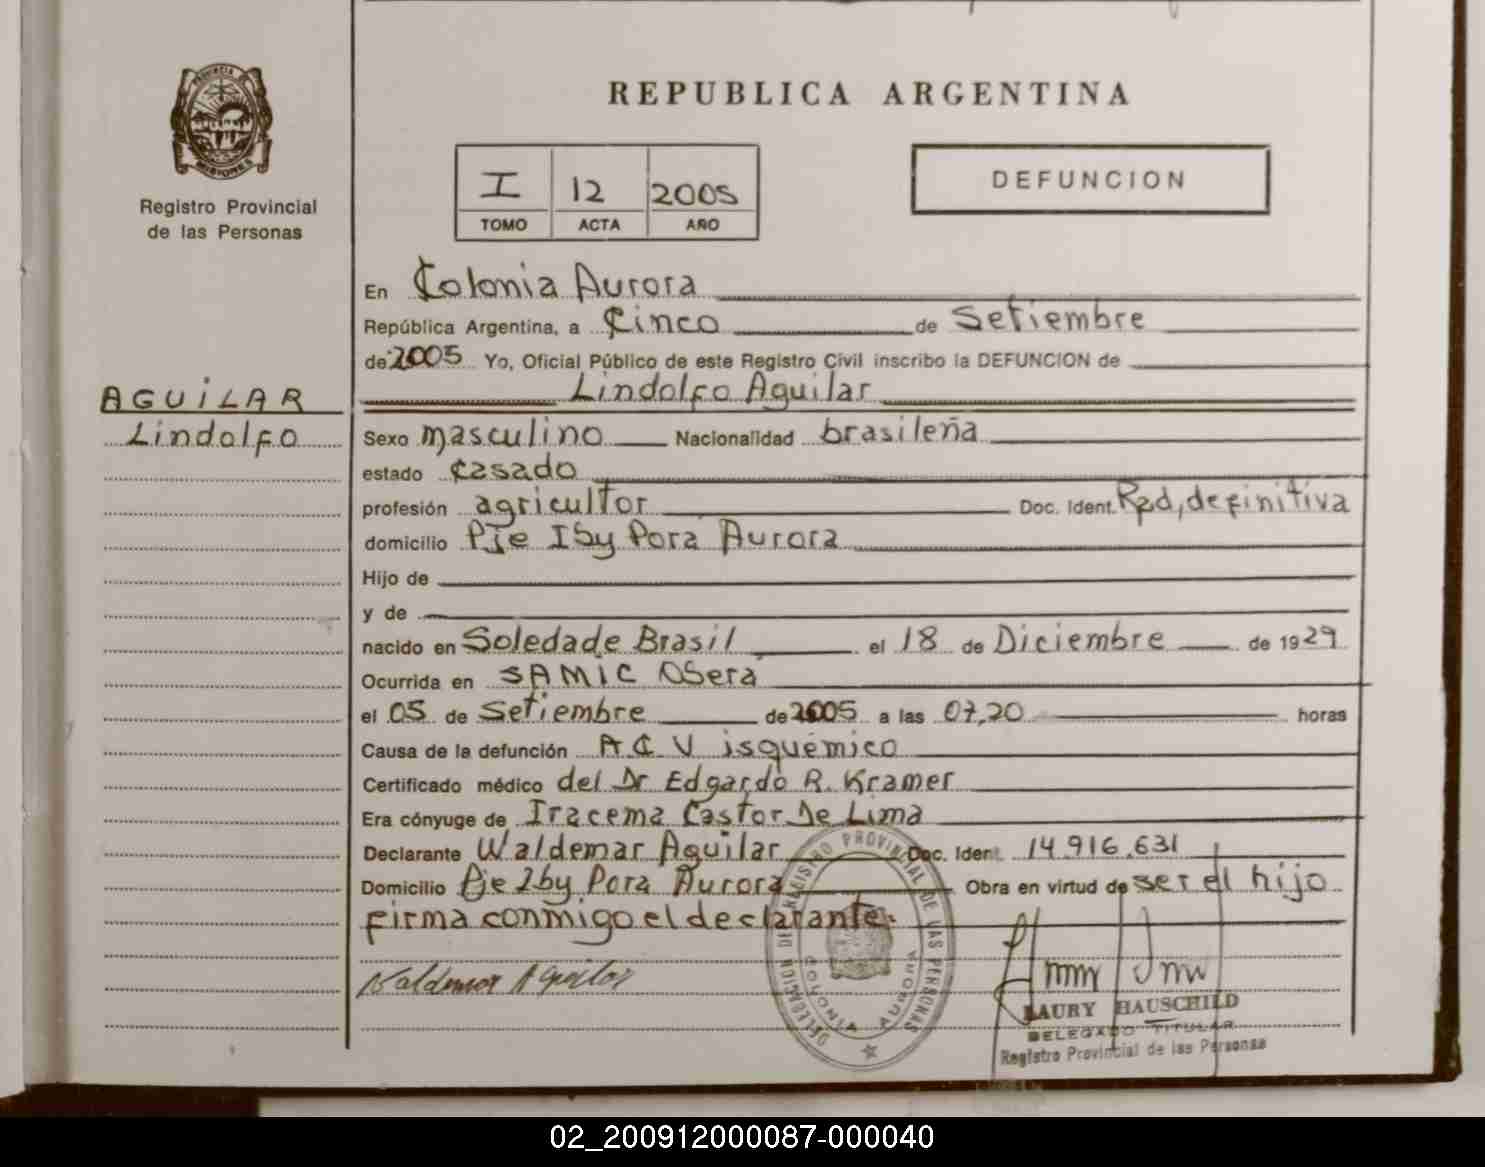 PROVINCIA DE
MISIONES
Registro Provincial
de las Personas
AGUiLAR
Lindolfo
REPUBLICA ARGENTINA
I 12 2005
TOMO ACTA AÑO
DEFUNCION
En Colonia Aurora
República Argentina, a Cinco de Setiembre
de 2005 Yo, Oficial Público de este Registro Civil inscribo la DEFUNCION de
Lindolfo Aguilar
Sexo masculino Nacionalidad brasileña
estado casado
profesión agricultor Doc. Ident. Rad, definitiva
domicilio Pje Iby Pora Aurora
Hijo de
y de
nacido en Soledade Brasil el 18 de Diciembre de 1929
Ocurrida en SAMiC OBera
el 05 de Setiembre de 2005 a las 07,20 horas
Causa de la defunción A C V isquémico
Certificado médico del Dr Edgardo R. Kramer
Era cónyuge de Iracema Castor De Lima
Declarante Waldemar Aguilar Doc. Ident. 14.916.631
Domicilio Pje Iby Pora Aurora Obra en virtud de ser el hijo
firma conmigo el declarante.
Waldemar Aguilar
DELEGACION DE REGISTRO PROVINCIAL DE LAS PERSONAS
COLONIA AURORA
LAURY HAUSCHILD
DELEGADO TITULAR
Registro Provincial de las Personas
02_200912000087-000040